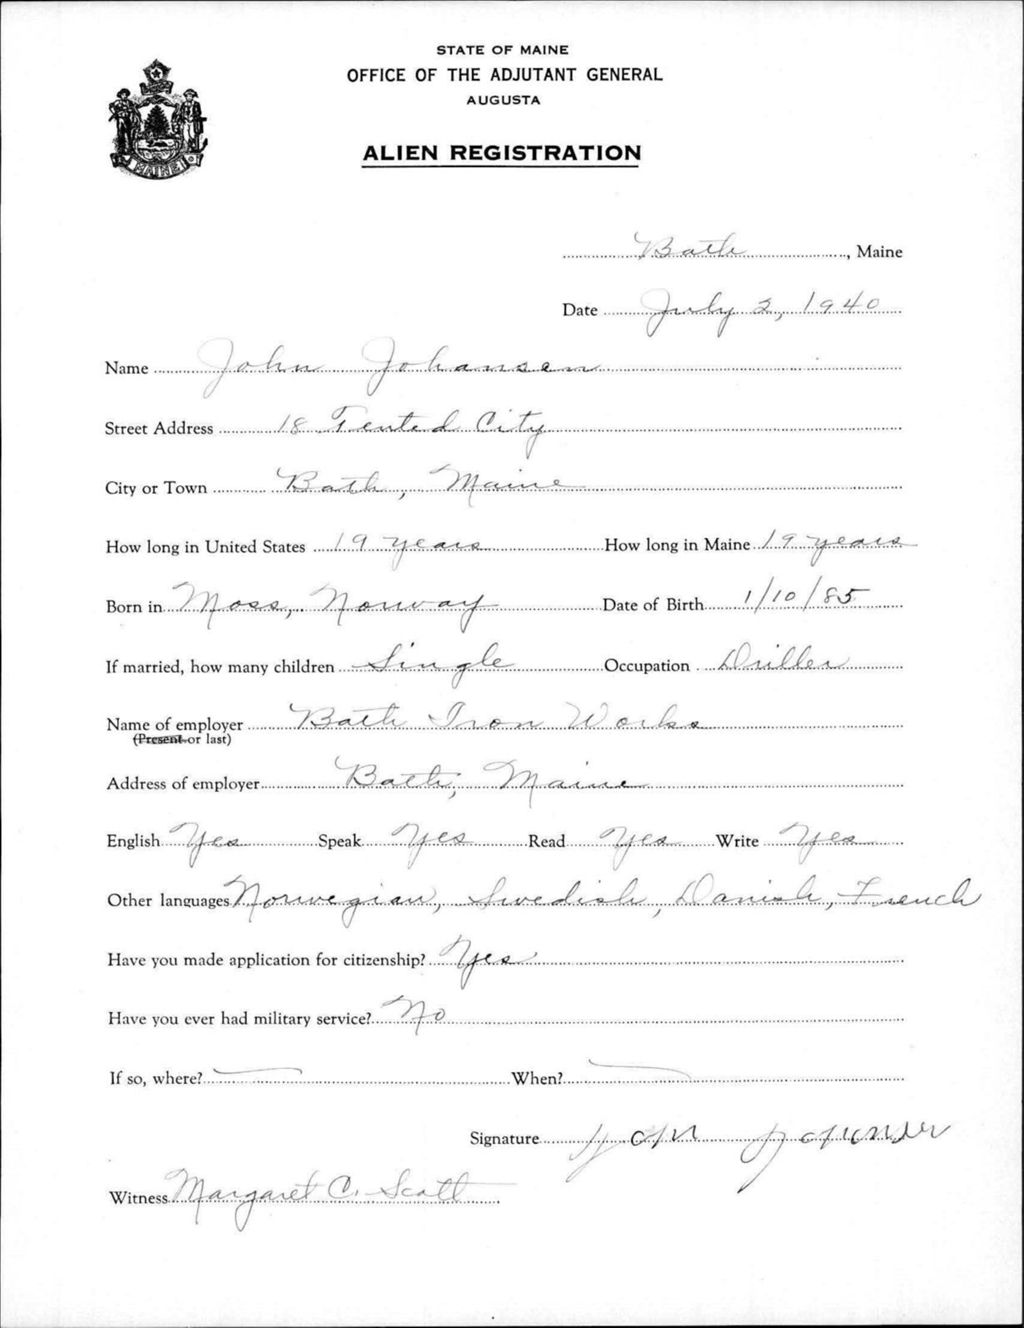 STATE OF MAINE
OFFICE OF THE ADJUTANT GENERAL
AUGUSTA
ALIEN REGISTRATION
MAINE
Bath, Maine
Date July 2, 1940
Name John Johansen
Street Address 18 Tented City
City or Town Bath, Maine
How long in United States 19 years How long in Maine 19 years
Born in Moss, Norway Date of Birth 1/10/85
If married, how many children Single Occupation Driller
Name of employer Bath Iron Works
(Present or last)
Address of employer Bath, Maine
English Yes Speak Yes Read Yes Write Yes
Other languages Norwegian, Swedish, Danish, French
Have you made application for citizenship? Yes
Have you ever had military service? No
If so, where? When?
Signature John
Witness Margaret C. Scott